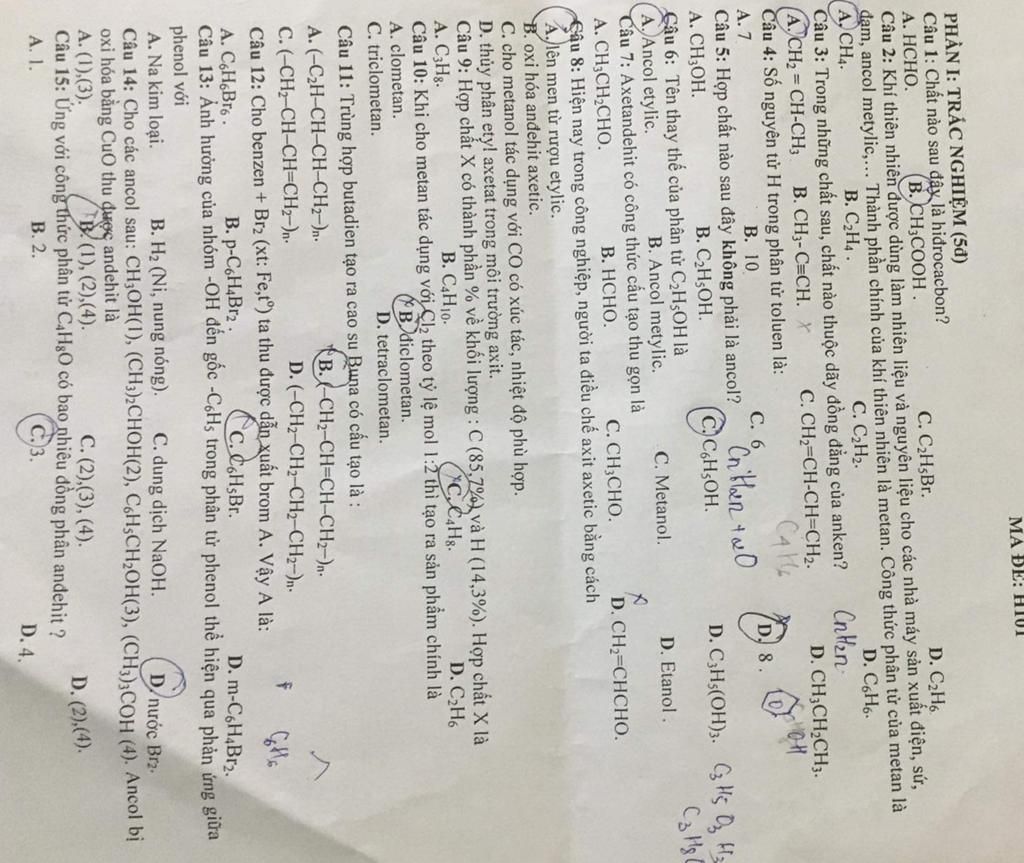 MÃ ĐỀ: H101
PHẦN I: TRẮC NGHIỆM (5đ)
Câu 1: Chất nào sau đây là hiđrocacbon?
A. HCHO. B. CH3COOH . C. C2H5Br. D. C2H6
Câu 2: Khí thiên nhiên được dùng làm nhiên liệu và nguyên liệu cho các nhà máy sản xuất điện, sứ,
đạm, ancol metylic,... Thành phần chính của khí thiên nhiên là metan. Công thức phân tử của metan là
A. CH4. B. C2H4 . C. C2H2. D. C6H6.
Câu 3: Trong những chất sau, chất nào thuộc dãy đồng đẳng của anken? CnH2n
A. CH2 = CH-CH3 B. CH3- C≡CH. x C. CH2=CH-CH=CH2. D. CH3CH2CH3.
C4H6
Câu 4: Số nguyên tử H trong phân tử toluen là:
A. 7 B. 10 C. 6 D. 8 .
Câu 5: Hợp chất nào sau đây không phải là ancol?
A. CH3OH. B. C2H5OH. C. C6H5OH. D. C3H5(OH)3.
Câu 6: Tên thay thế của phân tử C2H5OH là
A. Ancol etylic. B. Ancol metylic. C. Metanol. D. Etanol .
Câu 7: Axetandehit có công thức cấu tạo thu gọn là
A. CH3CH2CHO. B. HCHO. C. CH3CHO. D. CH2=CHCHO.
Câu 8: Hiện nay trong công nghiệp, người ta điều chế axit axetic bằng cách
A. lên men từ rượu etylic.
B. oxi hóa anđehit axetic.
C. cho metanol tác dụng với CO có xúc tác, nhiệt độ phù hợp.
D. thủy phân etyl axetat trong môi trường axit.
Câu 9: Hợp chất X có thành phần % về khối lượng : C (85,7%) và H (14,3%). Hợp chất X là
A. C3H8. B. C4H10. C. C4H8. D. C2H6
Câu 10: Khi cho metan tác dụng với Cl2 theo tỷ lệ mol 1:2 thì tạo ra sản phẩm chính là
A. clometan. B. điclometan.
C. triclometan. D. tetraclometan.
Câu 11: Trùng hợp butadien tạo ra cao su Buna có cấu tạo là :
A. (–C2H–CH–CH–CH2–)n. B. (–CH2–CH=CH–CH2–)n.
C. (–CH2–CH–CH=CH2–)n. D. (–CH2–CH2–CH2–CH2–)n.
Câu 12: Cho benzen + Br2 (xt: Fe,t°) ta thu được dẫn xuất brom A. Vậy A là: C6H6
A. C6H6Br6 . B. p-C6H4Br2 . C. C6H5Br. D. m-C6H4Br2.
Câu 13: Ảnh hưởng của nhóm -OH đến gốc -C6H5 trong phân tử phenol thể hiện qua phản ứng giữa
phenol với
A. Na kim loại. B. H2 (Ni, nung nóng). C. dung dịch NaOH. D. nước Br2.
Câu 14: Cho các ancol sau: CH3OH(1), (CH3)2CHOH(2), C6H5CH2OH(3), (CH3)3COH (4). Ancol bị
oxi hóa bằng CuO thu được andehit là
A. (1),(3). B. (1), (2),(4). C. (2),(3), (4). D. (2),(4).
Câu 15: Ứng với công thức phân tử C4H8O có bao nhiêu đồng phân andehit ?
A. 1. B. 2. C. 3. D. 4.